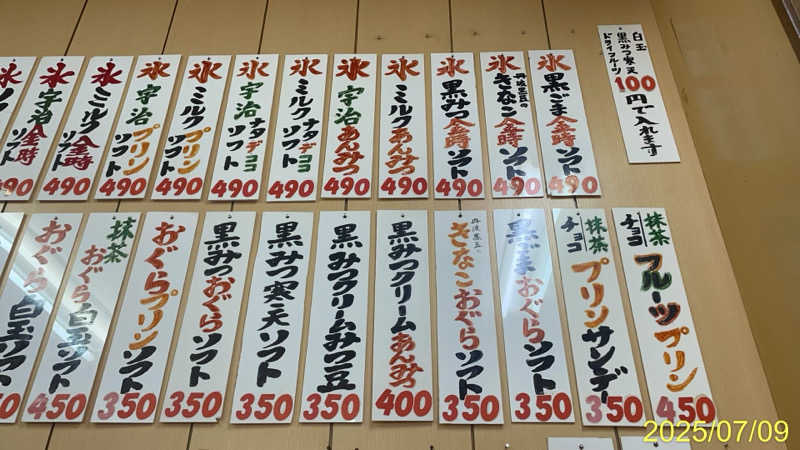 氷 ソフト 490
氷 宇治金時ソフト 490
氷 ミルク金時ソフト 490
氷 宇治プリンソフト 490
氷 ミルクプリンソフト 490
氷 宇治ナタデココソフト 490
氷 ミルクナタデココソフト 490
氷 宇治あんみつ 490
氷 ミルクあんみつ 490
氷 黒みつ金時ソフト 490
氷 丹波黒豆の きなこ金時ソフト 490
氷 黒ごま金時ソフト 490
白玉
黒みつ寒天
ドライフルーツ
100円で入れます
おぐら白玉ソフト
抹茶おぐら白玉ソフト 450
おぐらプリンソフト 350
黒みつおぐらソフト 350
黒みつ寒天ソフト 350
黒みつクリームみつ豆 350
黒みつクリームあんみつ 400
丹波黒豆の きなこおぐらソフト 350
黒ごまおぐらソフト 350
抹茶 チョコ プリンサンデー 350
抹茶 チョコ フルーツプリン 450
2025/07/09